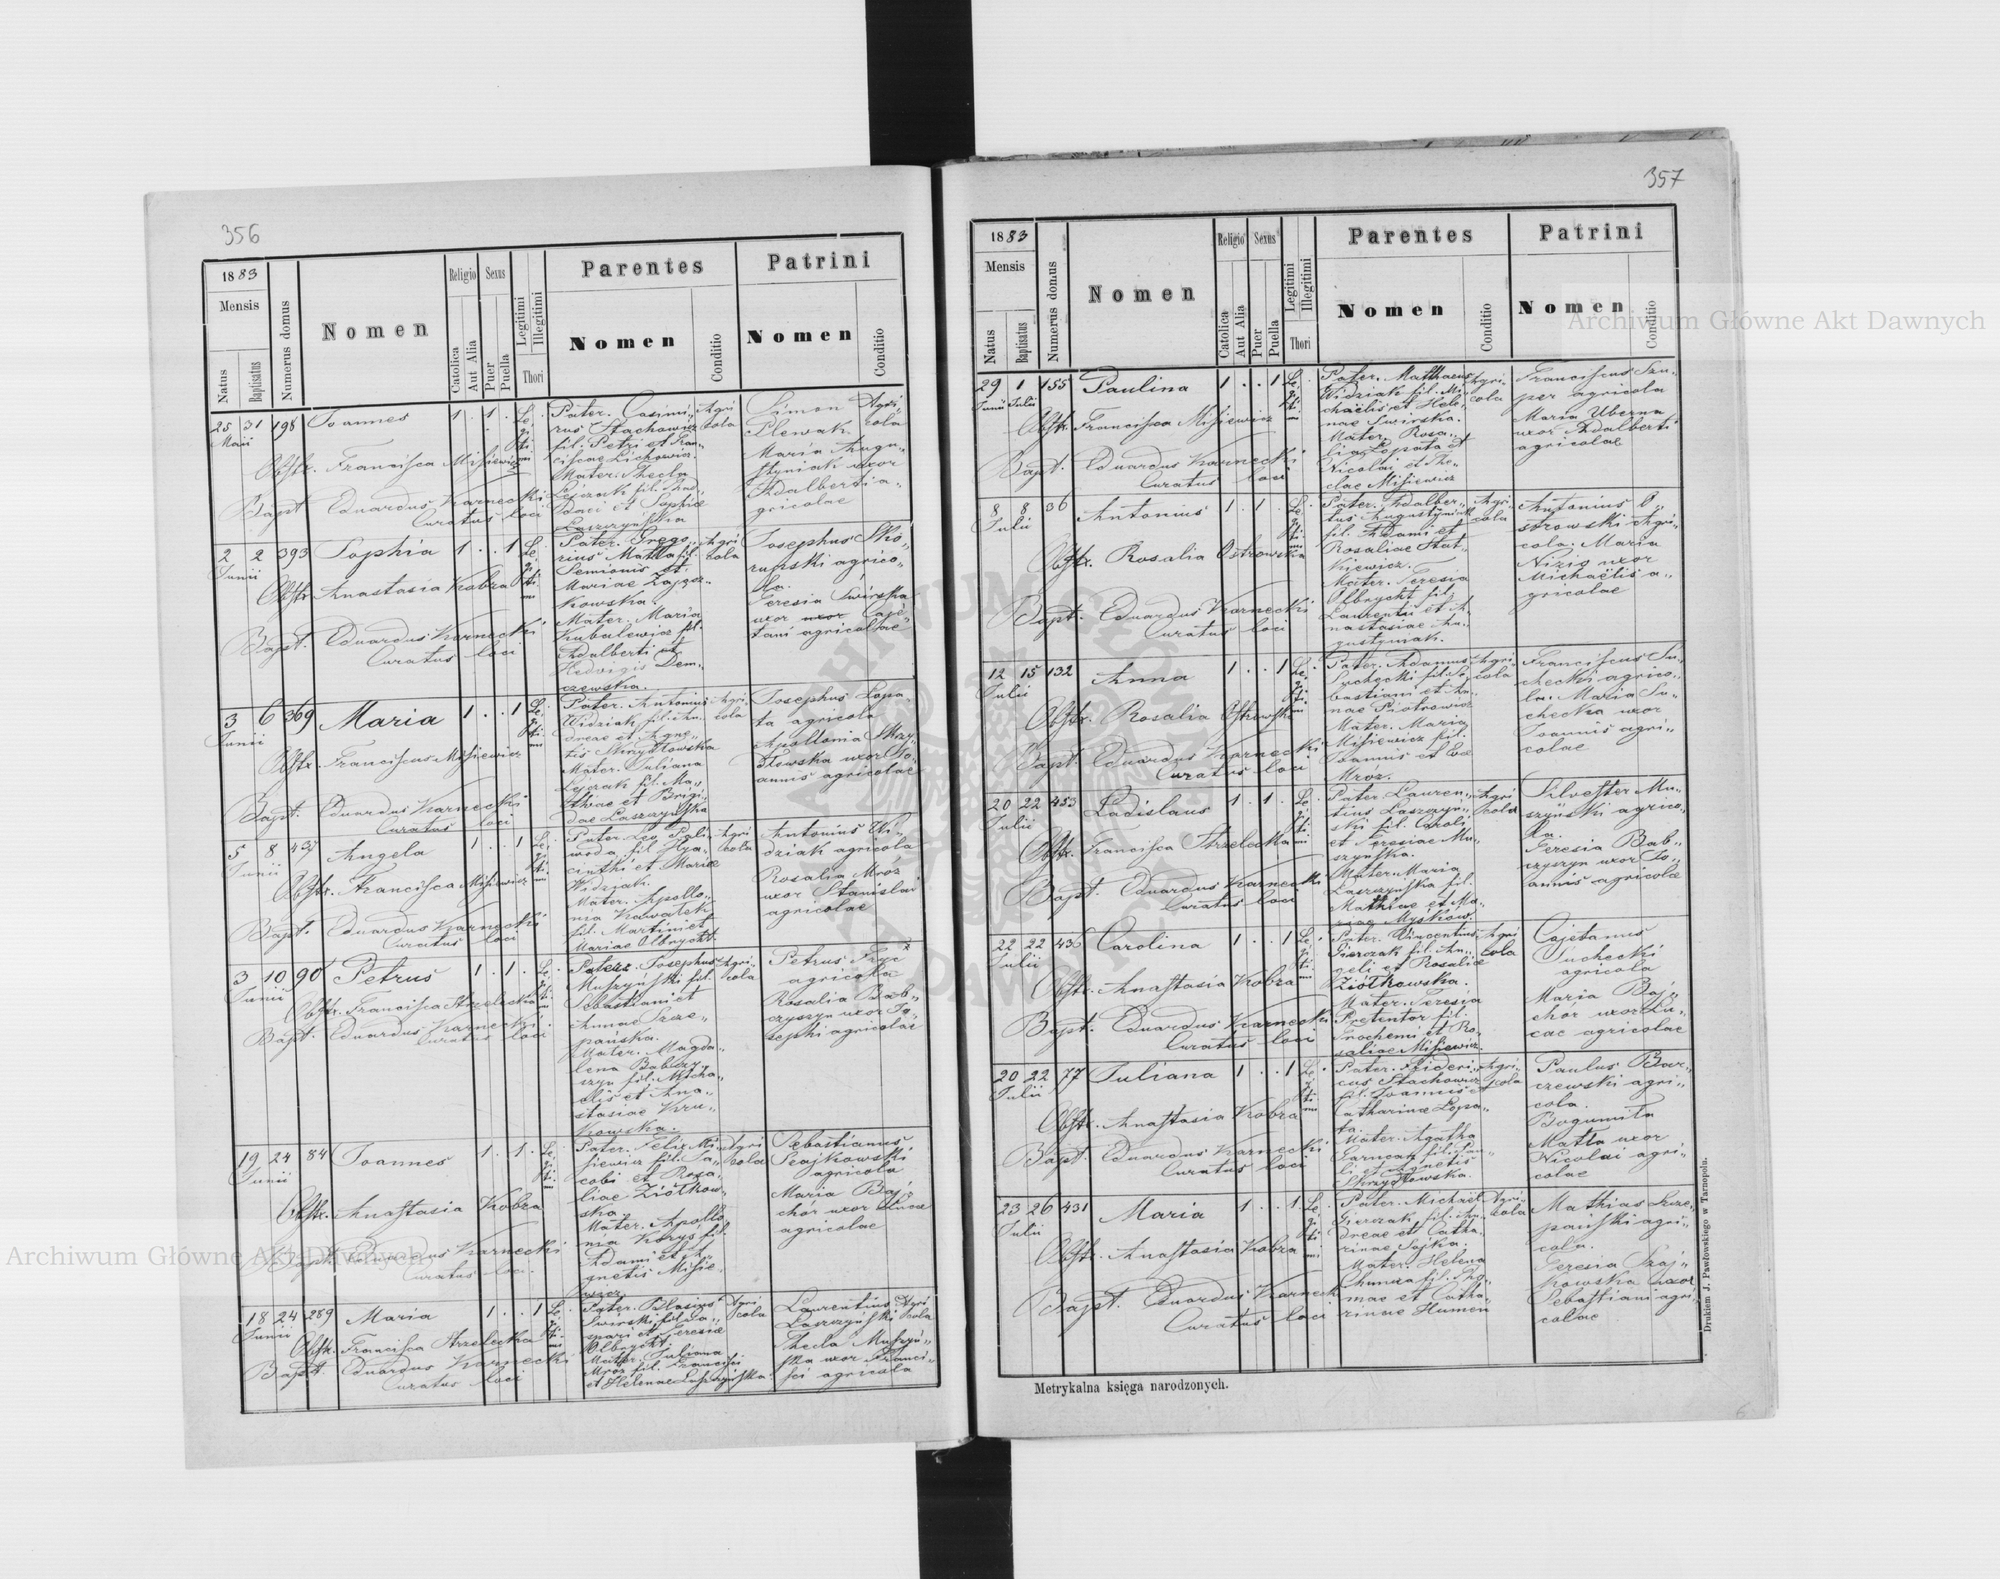 356
1883
Mensis
Natus
Baptisatus
Numerus domus
Nomen
Religio
Catholica
Aut Alia
Sexus
Puer
Puella
Legitimi
Illegitimi
Thori
Parentes
Nomen
Conditio
Patrini
Nomen
Conditio
25 31 198 Joannes 1 . 1 .
Maii
Obstr. Francisca Misiewicz
Bapt. Eduardus Karnecki
Curatus loci
Pater. Casimi„
rus Stachowicz
fil. Petri et Fran„
ciscae Lichowicz.
Mater. Thecla
Lejczak fil. Thad„
daei et Sophiae
Laszczyńska
Agri
cola
Simon Agri„
Plewak cola
Maria Augu„
styniak uxor
Adalberti a„
gricolae
2 2 393 Sophia 1 . . 1
Junii
Obstr. Anastasia Kobza
Bapt. Eduardus Karnecki
Curatus loci
Pater. Grego„
rius Matla fil.
Semionis et
Mariae Zającz„
kowska.
Mater. Maria
Kubalewicz fil.
Adalberti et
Hedvigis Dem„
czewska.
Agri
cola
Josephus Sko„
rupski agrico„
la.
Teresia Świrska
uxor uxor Caje
tani agricolae
3 6 369 Maria 1 . . 1
Junii
Obstr. Franciscus Misiewicz
Bapt. Eduardus Karnecki
Curatus loci
Pater. Antonius
Widziak fil. An„
dreae et Agne„
tis Skrzydłowska
Mater. Juliana
Lejczak fil. Ma„
thiae et Brigi„
dae Laszczyńska
Agri
cola
Josephus Łopa„
ta agricola
Apollonia Skrzy„
dłowska uxor Jo„
annis agricolae
5 8 437 Angela 1 . . 1
Junii
Obstr. Francisca Misiewicz
Bapt. Eduardus Karnecki
Curatus loci
Pater. Leo Pali„
woda fil. Hya„
cinthi et Mariae
Widziak.
Mater. Apollo„
nia Kowalek
fil. Martini et
Mariae Olbrycht.
Agri
cola
Antonius Wi„
dziak agricola
Rosalia Mróz
uxor Stanislai
agricolae
3 10 90 Petrus 1 . 1 .
Junii
Obstr. Francisca Strzelecka
Bapt. Eduardus Karnecki
Curatus loci
Pater. Josephus
Muszyński fil.
Sebastiani et
Annae Szcze„
pańska.
Mater. Magda„
lena Babczy„
szyn fil. Micha„
elis et Ana„
stasiae Kru„
kowska.
Agri„
cola
Petrus Fryc
agricola
Rosalia Bab„
czyszyn uxor Jo„
sephi agricolae
19 24 84 Joannes 1 . 1 .
Junii
Obstr. Anastasia Kobza
Bapt. Eduardus Karnecki
Curatus loci.
Pater. Felix Mi„
siewicz fil. Ja„
cobi et Rosa„
liae Ziółkow„
ska.
Mater. Apollo„
nia Koryś fil.
Adami et A„
gnetis Misie„
wicz
Agri
cola
Sebastianus
Szajkowski
agricola
Maria Baj„
chór uxor Lucae
agricolae
18 24 289 Maria 1 . . 1
Junii
Obstr. Francisca Strzelecka
Bapt. Eduardus Karnecki
Curatus loci
Pater. Blasius
Świrski fil. Ca„
spari et Teresiae
Olbrycht.
Mater. Juliana
Mróz fil. Francisci
et Helenae Laszczyńska
Agri
cola
Laurentius Agri
Laszczyński cola
Thecla Muszyń„
ska uxor Franci„
sci agricola
357
1883
Mensis
Natus
Baptisatus
Numerus domus
Nomen
Religio
Catolica
Aut Alia
Sexus
Puer
Puella
Legitimi
Illegitimi
Thori
Parentes
Nomen
Conditio
Patrini
Nomen
Conditio
29 1 155 Paulina 1 . . 1
Junii Julii
Obstr. Francisca Misiewicz
Bapt. Eduardus Karnecki
Curatus loci
Pater. Mathaeus
Widziak fil. Mi„
chaëlis et Hele„
nae Świrska.
Mater. Rosa„
lia Łopata fil
Nicolai et The„
clae Misiewicz
Agri„
cola
Franciscus Szu„
per agricola
Maria Uberna
uxor Adalberti
agricolae
8 8 36 Antonius 1 . 1 .
Julii
Obstr. Rosalia Ostrowska
Bapt. Eduardus Karnecki
Curatus loci
Pater. Adalber„
tus Augustyniak
fil. Adami et
Rosaliae Stat„
kiewicz.
Mater. Teresia
Olbrycht fil.
Laurentii et A„
nastasiae Au„
gustyniak.
Agri
cola
Antonius O„
strowski Agri„
cola. Maria
Nizio uxor
Michaëlis a„
gricolae
12 15 132 Anna 1 . . 1
Julii
Obstr. Rosalia Ostrowska
Bapt. Eduardus Karnecki
Curatus loci
Pater. Adamus
Suchecki fil. Se„
bastiani et An„
nae Piotrowicz
Mater. Maria
Misiewicz fil.
Joannis et Evae
Mróz.
Agri„
cola
Franciscus Su„
checki agrico„
la. Maria Su„
checka uxor
Joannis agri„
colae
20 22 453 Ladislaus 1 . 1 .
Julii
Obstr. Francisca Strzelecka
Bapt. Eduardus Karnecki
Curatus loci
Pater. Lauren„
tius Laszczyń„
ski fil. Caroli
et Teresiae Mu„
szyńska.
Mater. Maria
Laszczyńska fil.
Mathiae et Ma„
riae Myśków.
Agri
cola
Silvester Mu„
szyński agrico„
la.
Teresia Bab„
czyszyn uxor Jo„
annis agricolae
22 22 436 Carolina 1 . . 1
Julii
Obstr. Anastasia Kobza
Bapt. Eduardus Karnecki
Curatus loci
Pater. Vincentius
Gierczak fil. An„
geli et Rosaliae
Ziółkowska.
Mater. Teresia
Pretentor fil.
Prochemi et Ro„
saliae Misiewicz.
Agri
cola
Cajetanus
Suchecki
agricola
Maria Baj„
chór uxor Lu„
cae agricolae
20 22 77 Juliana 1 . . 1
Julii
Obstr. Anastasia Kobza
Bapt. Eduardus Karnecki
Curatus loci
Pater. Frideri„
cus Stachowicz
fil. Joannis et
Catharinae Łopa„
ta.
Mater. Agatha
Garncarz fil. Pau„
li et Agnetis
Skrzydłowska.
Agri„
cola
Paulus Bar„
czewski agri„
cola.
Bogumiła
Matla uxor
Nicolai agri„
colae
23 26 431 Maria 1 . . 1
Julii
Obstr. Anastasia Kobza
Bapt. Eduardus Karnecki
Curatus loci
Pater. Michaël
Gierczak fil. An„
dreae et Catha„
rinae Sojka.
Mater. Helena
Chumca fil. Tho„
mae et Catha„
rinae Humen
Agri„
cola
Mathias Szcze„
pański agri„
cola.
Teresia Szaj„
kowska uxor
Sebastiani agri„
colae
Metrykalna księga narodzonych.
Drukiem J. Pawłowskiego w Tarnopolu.
Archiwum Główne Akt Dawnych
Archiwum Główne Akt Dawnych